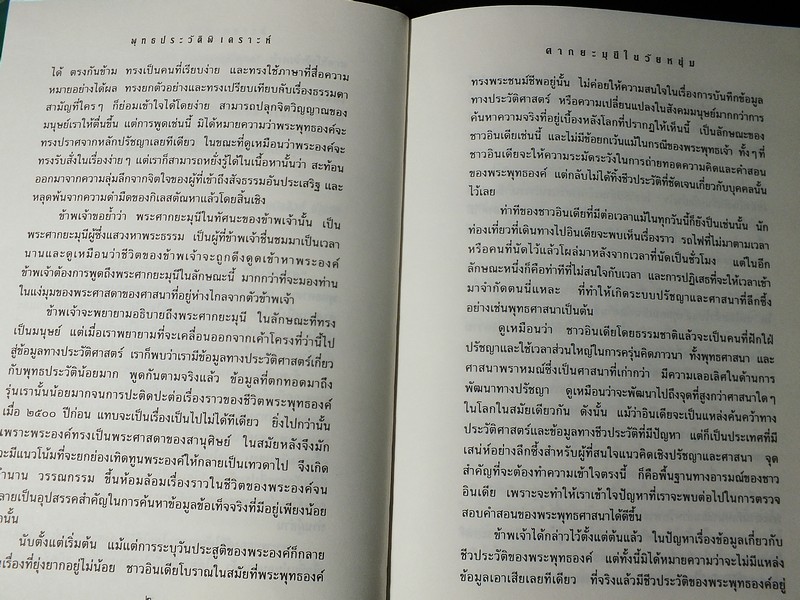 พุทธประวัติพิเคราะห์
ได้ ตรงกันข้าม ทรงเป็นคนที่เรียบง่าย และทรงใช้ภาษาที่สื่อความ
หมายอย่างได้ผล ทรงยกตัวอย่างและทรงเปรียบเทียบกับเรื่องธรรมดา
สามัญที่ใครๆ ก็ย่อมเข้าใจได้โดยง่าย สามารถปลุกจิตวิญญาณของ
มนุษย์เราให้ตื่นขึ้น แต่การพูดเช่นนี้ มิได้หมายความว่าพระพุทธองค์จะ
ทรงปราศจากหลักปรัชญาเลยทีเดียว ในขณะที่ดูเหมือนว่าพระองค์จะ
ทรงรับสั่งในเรื่องง่ายๆ แต่เราก็สามารถหยั่งรู้ได้ในเนื้อหานั้นว่า สะท้อน
ออกมาจากความลุ่มลึกจากจิตใจของผู้ที่เข้าถึงสัจธรรมอันประเสริฐ และ
หลุดพ้นจากความดำมืดของกิเลสตัณหาแล้วโดยสิ้นเชิง
ข้าพเจ้าขอย้ำว่า พระศากยะมุนีในทัศนะของข้าพเจ้านั้น เป็น
พระศากยะมุนีผู้ซึ่งแสวงหาพระธรรม เป็นผู้ที่ข้าพเจ้าชื่นชมมาเป็นเวลา
นานและดูเหมือนว่าชีวิตของข้าพเจ้าจะถูกดึงดูดเข้าหาพระองค์
ข้าพเจ้าต้องการพูดถึงพระศากยะมุนีในลักษณะนี้ มากกว่าที่จะมองท่าน
ในแง่มุมของพระศาสดาของศาสนาที่อยู่ห่างไกลจากตัวข้าพเจ้า
ข้าพเจ้าจะพยายามอธิบายถึงพระศากยะมุนี ในลักษณะที่ทรง
เป็นมนุษย์ แต่เมื่อเราพยายามที่จะเคลื่อนออกจากเค้าโครงที่ว่านี้ไป
สู่ข้อมูลทางประวัติศาสตร์ เราก็พบว่าเรามีข้อมูลทางประวัติศาสตร์เกี่ยว
กับพุทธประวัติน้อยมาก พูดกันตามจริงแล้ว ข้อมูลที่ตกทอดมาถึง
รุ่นเรานั้นน้อยมากจนการปะติดปะต่อเรื่องราวของชีวิตพระพุทธองค์
เมื่อ ๒๕๐๐ ปีก่อน แทบจะเป็นเรื่องเป็นไปไม่ได้ทีเดียว ยิ่งไปกว่านั้น
เพราะพระองค์ทรงเป็นพระศาสดาของสานุศิษย์ ในสมัยหลังจึงมัก
จะมีแนวโน้มที่จะยกย่องเทิดทูนพระองค์ให้กลายเป็นเทวดาไป จึงเกิด
ตำนาน วรรณกรรม ขึ้นห้อมล้อมเรื่องราวในชีวิตของพระองค์จน
ลายเป็นอุปสรรคสำคัญในการค้นหาข้อมูลข้อเท็จจริงที่มีอยู่เพียงน้อย
นั้น
นับตั้งแต่เริ่มต้น แม้แต่การระบุวันประสูติของพระองค์ก็กลาย
เรื่องที่ยุ่งยากอยู่ไม่น้อย ชาวอินเดียโบราณในสมัยที่พระพุทธองค์
ศากยะมุนีในวัยหนุ่ม
ทรงพระชนม์ชีพอยู่นั้น ไม่ค่อยให้ความสนใจในเรื่องการบันทึกข้อมูล
ทางประวัติศาสตร์ หรือความเปลี่ยนแปลงในสังคมมนุษย์มากกว่าการ
ค้นหาความจริงที่อยู่เบื้องหลังโลกที่ปรากฏให้เห็นนี้ เป็นลักษณะของ
ชาวอินเดียเช่นนี้ และไม่มีข้อยกเว้นแม้ในกรณีของพระพุทธเจ้า ทั้งๆ ที่
ชาวอินเดียจะให้ความระมัดระวังในการถ่ายทอดความคิดและคำสอน
ของพระพุทธองค์ แต่กลับไม่ได้ทิ้งชีวประวัติที่ชัดเจนเกี่ยวกับบุคคลนั้น
ไว้เลย
ท่าทีของชาวอินเดียที่มีต่อเวลาแม้ในทุกวันนี้ก็ยังเป็นเช่นนั้น นัก
ท่องเที่ยวที่เดินทางไปอินเดียจะพบเห็นเรื่องราว รถไฟที่ไม่มาตามเวลา
หรือคนที่นัดไว้แล้วโผล่มาหลังจากเวลาที่นัดเป็นชั่วโมง แต่ในอีก
ลักษณะหนึ่งก็คือท่าทีที่ไม่สนใจกับเวลา และการปฏิเสธที่จะให้เวลาเข้า
มาจำกัดตนนี่แหละ ที่ทำให้เกิดระบบปรัชญาและศาสนาที่ลึกซึ้ง
อย่างเช่นพุทธศาสนาเป็นต้น
ดูเหมือนว่า ชาวอินเดียโดยธรรมชาติแล้วจะเป็นคนที่ฝักใฝ่
ปรัชญาและใช้เวลาส่วนใหญ่ในการครุ่นคิดภาวนา ทั้งพุทธศาสนา และ
ศาสนาพราหมณ์ซึ่งเป็นศาสนาที่เก่ากว่า มีความเลอเลิศในด้านการ
พัฒนาทางปรัชญา ดูเหมือนว่าจะพัฒนาไปถึงจุดที่สูงกว่าศาสนาใดๆ
ในโลกในสมัยเดียวกัน ดังนั้น แม้ว่าอินเดียจะเป็นแหล่งค้นคว้าทาง
ประวัติศาสตร์และข้อมูลทางชีวประวัติที่มีปัญหา แต่ก็เป็นประเทศที่มี
เสน่ห์อย่างลึกซึ้งสำหรับผู้ที่สนใจแนวคิดเชิงปรัชญาและศาสนา จุด
สำคัญที่จะต้องทำความเข้าใจตรงนี้ ก็คือพื้นฐานทางอารมณ์ของชาว
อินเดีย เพราะจะทำให้เราเข้าใจปัญหาที่เราจะพบต่อไปในการตรวจ
สอบคำสอนของพระพุทธศาสนาได้ดีขึ้น
ข้าพเจ้าได้กล่าวไว้ตั้งแต่ต้นแล้ว ในปัญหาเรื่องข้อมูลเกี่ยวกับ
ชีวประวัติของพระพุทธองค์ แต่ทั้งนี้มิได้หมายความว่าจะไม่มีแหล่ง
ข้อมูลเอาเสียเลยทีเดียว ที่จริงแล้วมีชีวประวัติของพระพุทธองค์อยู่